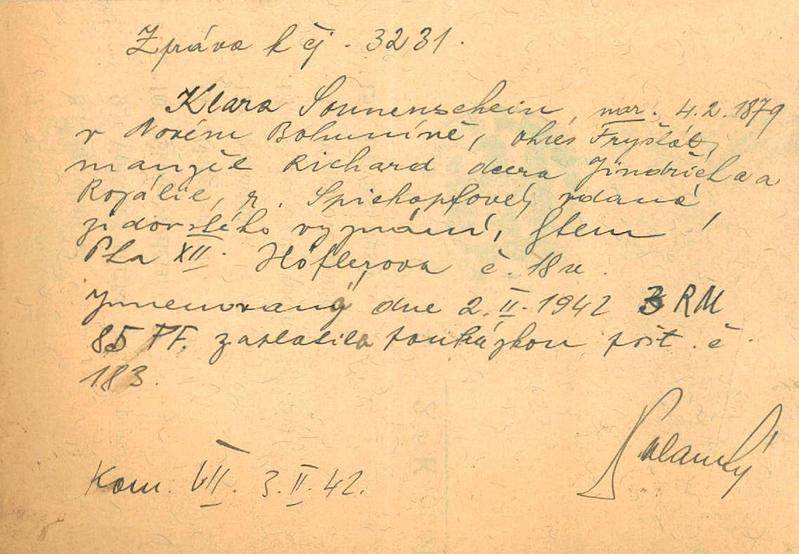 Zpráva k čj. 3231.
Klara Sonnenschein, nar. 4.2.1879
v Novém Bohumíně, okres Fryštát,
manžel Richard dcera Jindřicha a
Rozálie, r. vdaná
židovského vyznání, bytem
Pha XII. Höflerova č. 18n.
Jmenovaný dne 2.II.1942 3 RM
85 Pf. zaslasila poukázkou pošt. č.
183.
Kom. VII. 3.II.42.